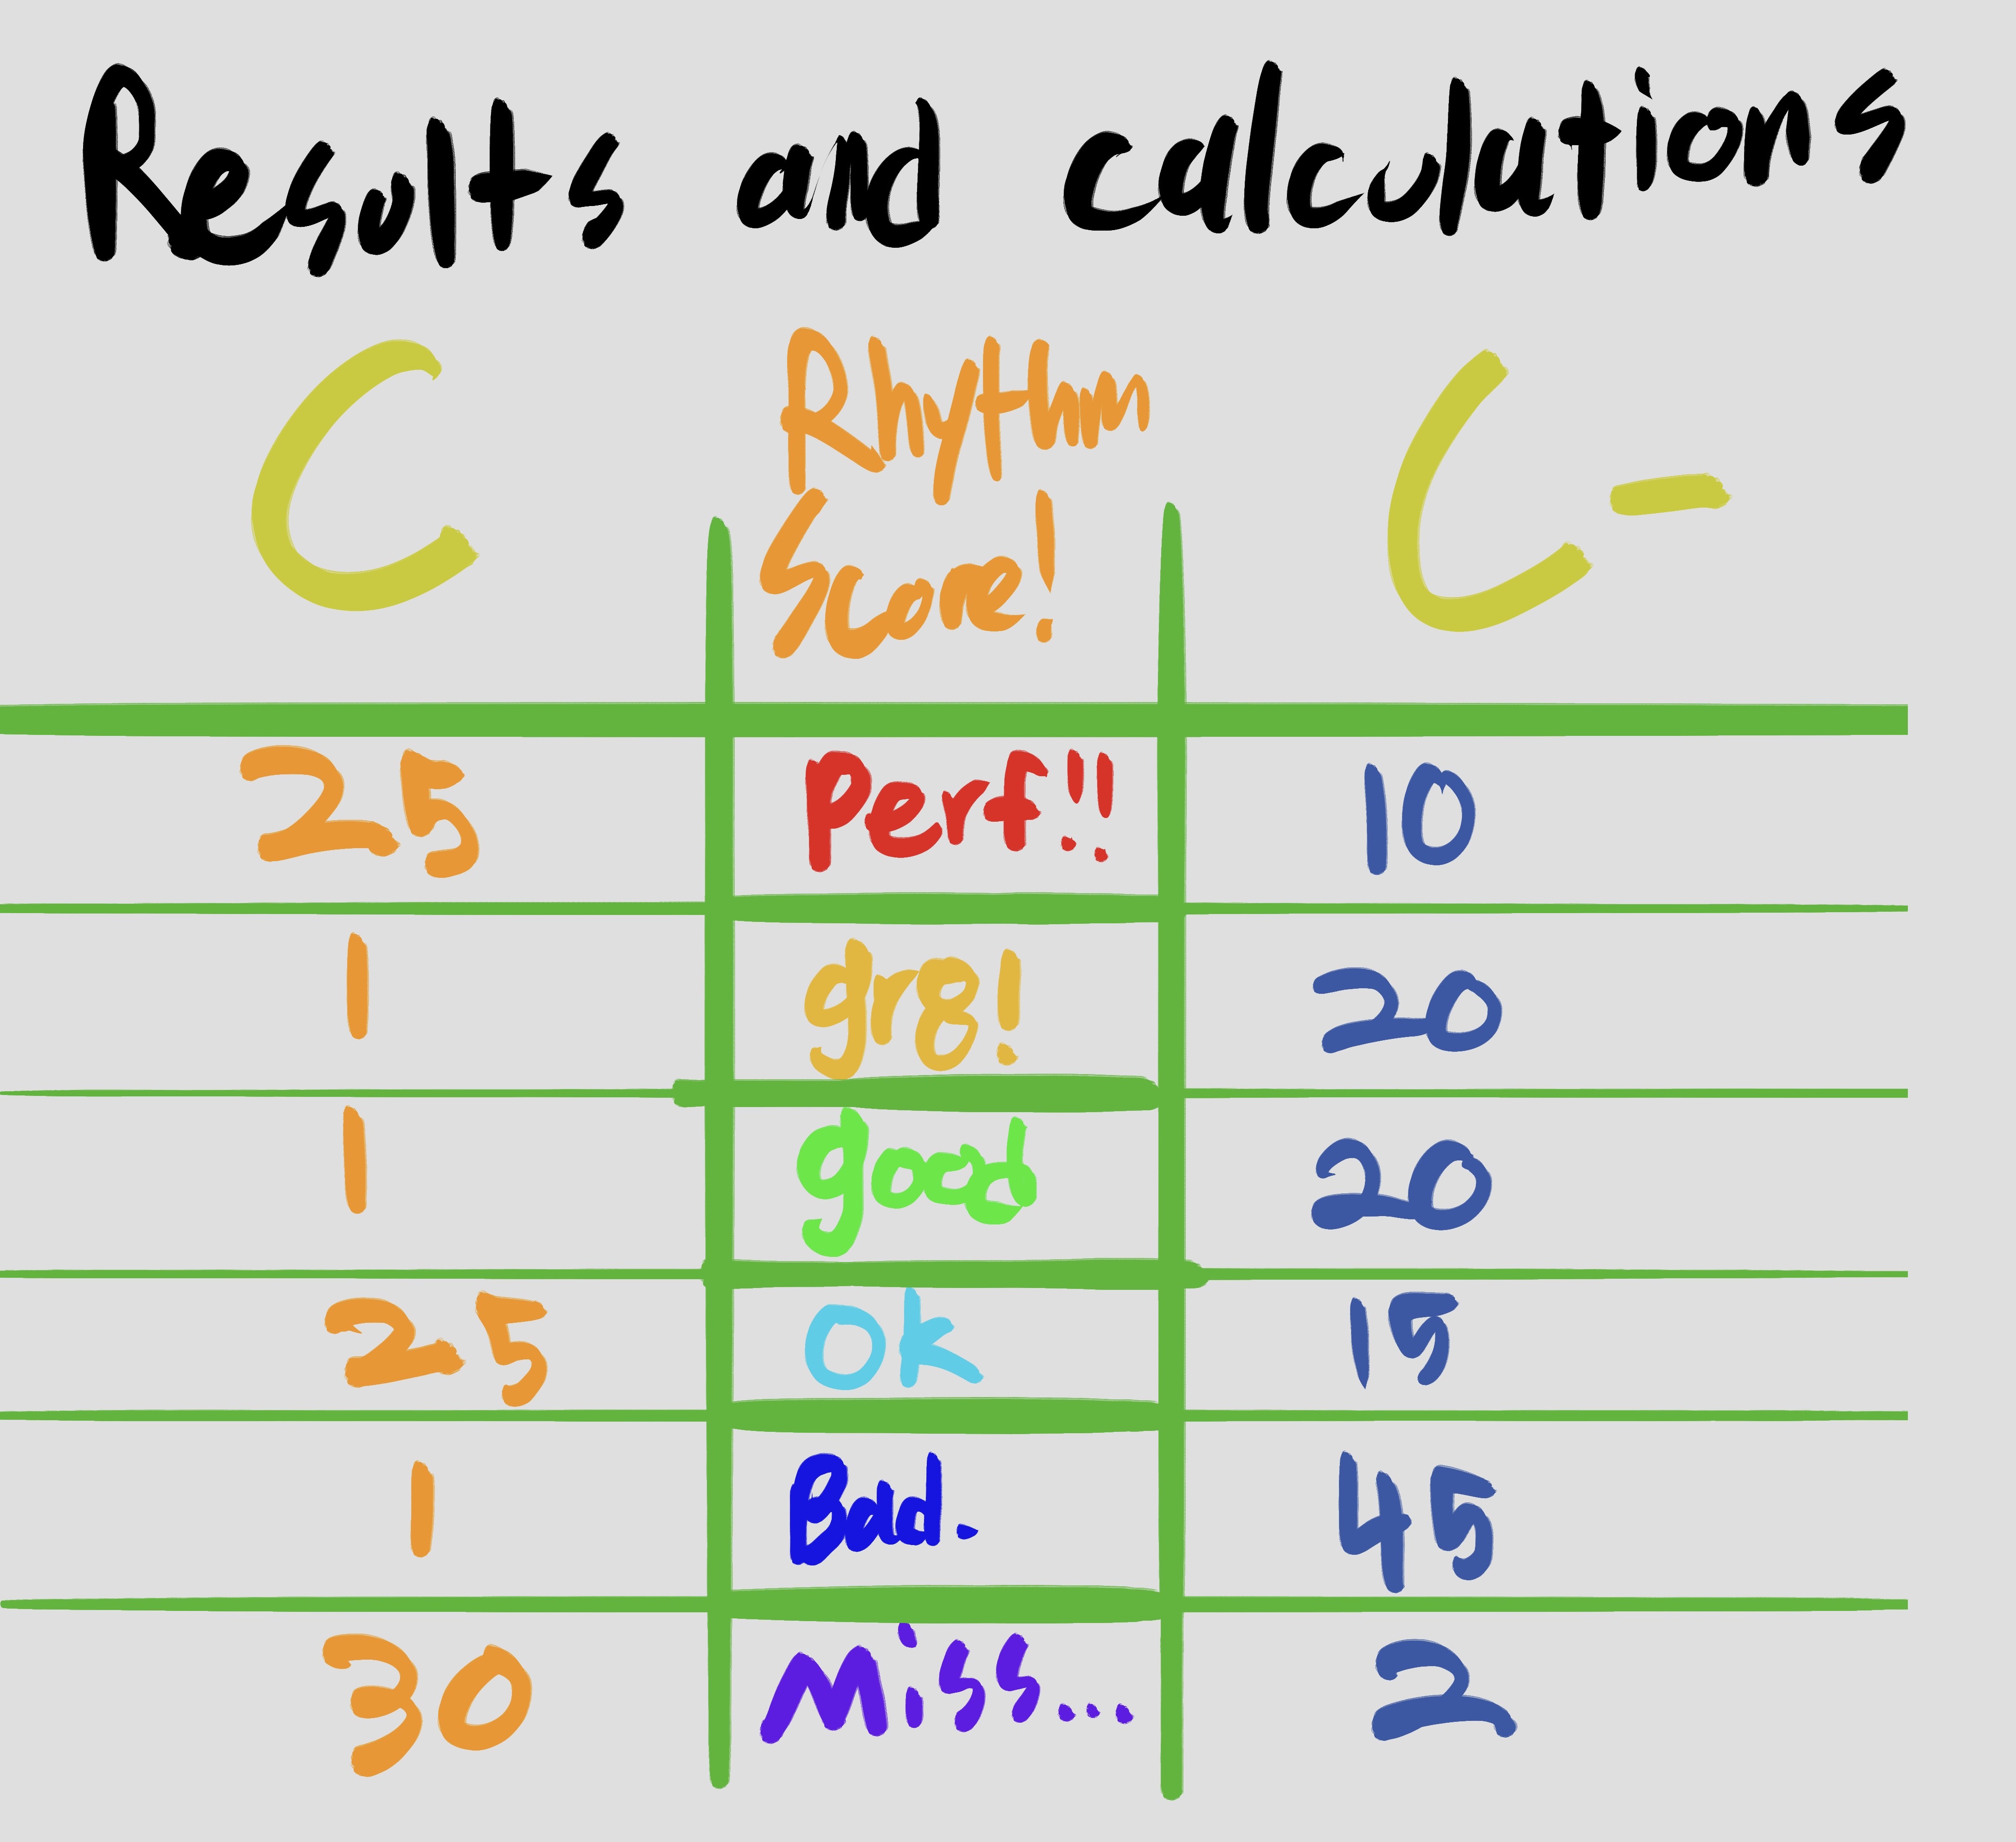 Results and calculations
C Rhythm C -
Score!
25 Perf!! 10
1 gr8! 20
1 good 20
25 OK 15
1 Bad. 45
30 Miss... 2